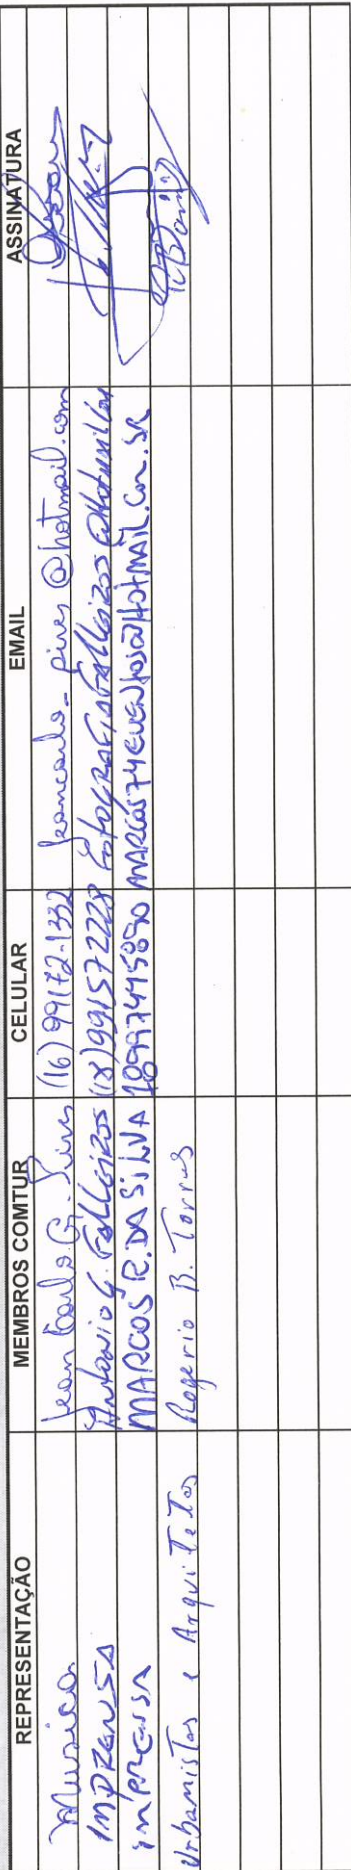 REPRESENTAÇÃO MEMBROS COMTUR CELULAR EMAIL ASSINATURA
Musica Jean Carlo G. Pires (16) 99172-1332 jeancarlo_pires@hotmail.com
IMPRENSA Antonio G. Falleiros (18) 991572228 @hotmail.com
IMPRENSA MARCOS R. DA SILVA MARCOS74EVENTOS@HOTMAIL.COM.BR
Urbanistas e Arquitetos Rogerio B. Torres